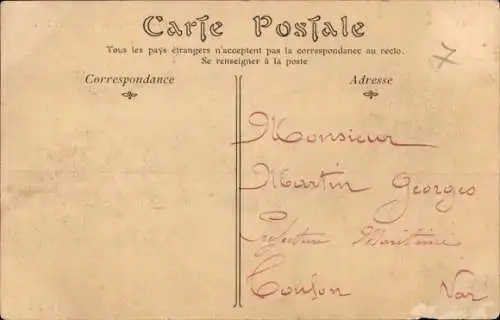 Carte Postale
Tous les pays étrangers n'acceptent pas la correspondance au recto.
Se renseigner à la poste
Correspondance
Adresse
Monsieur
Martin Georges
Prefecture Maritime
Toulon Var